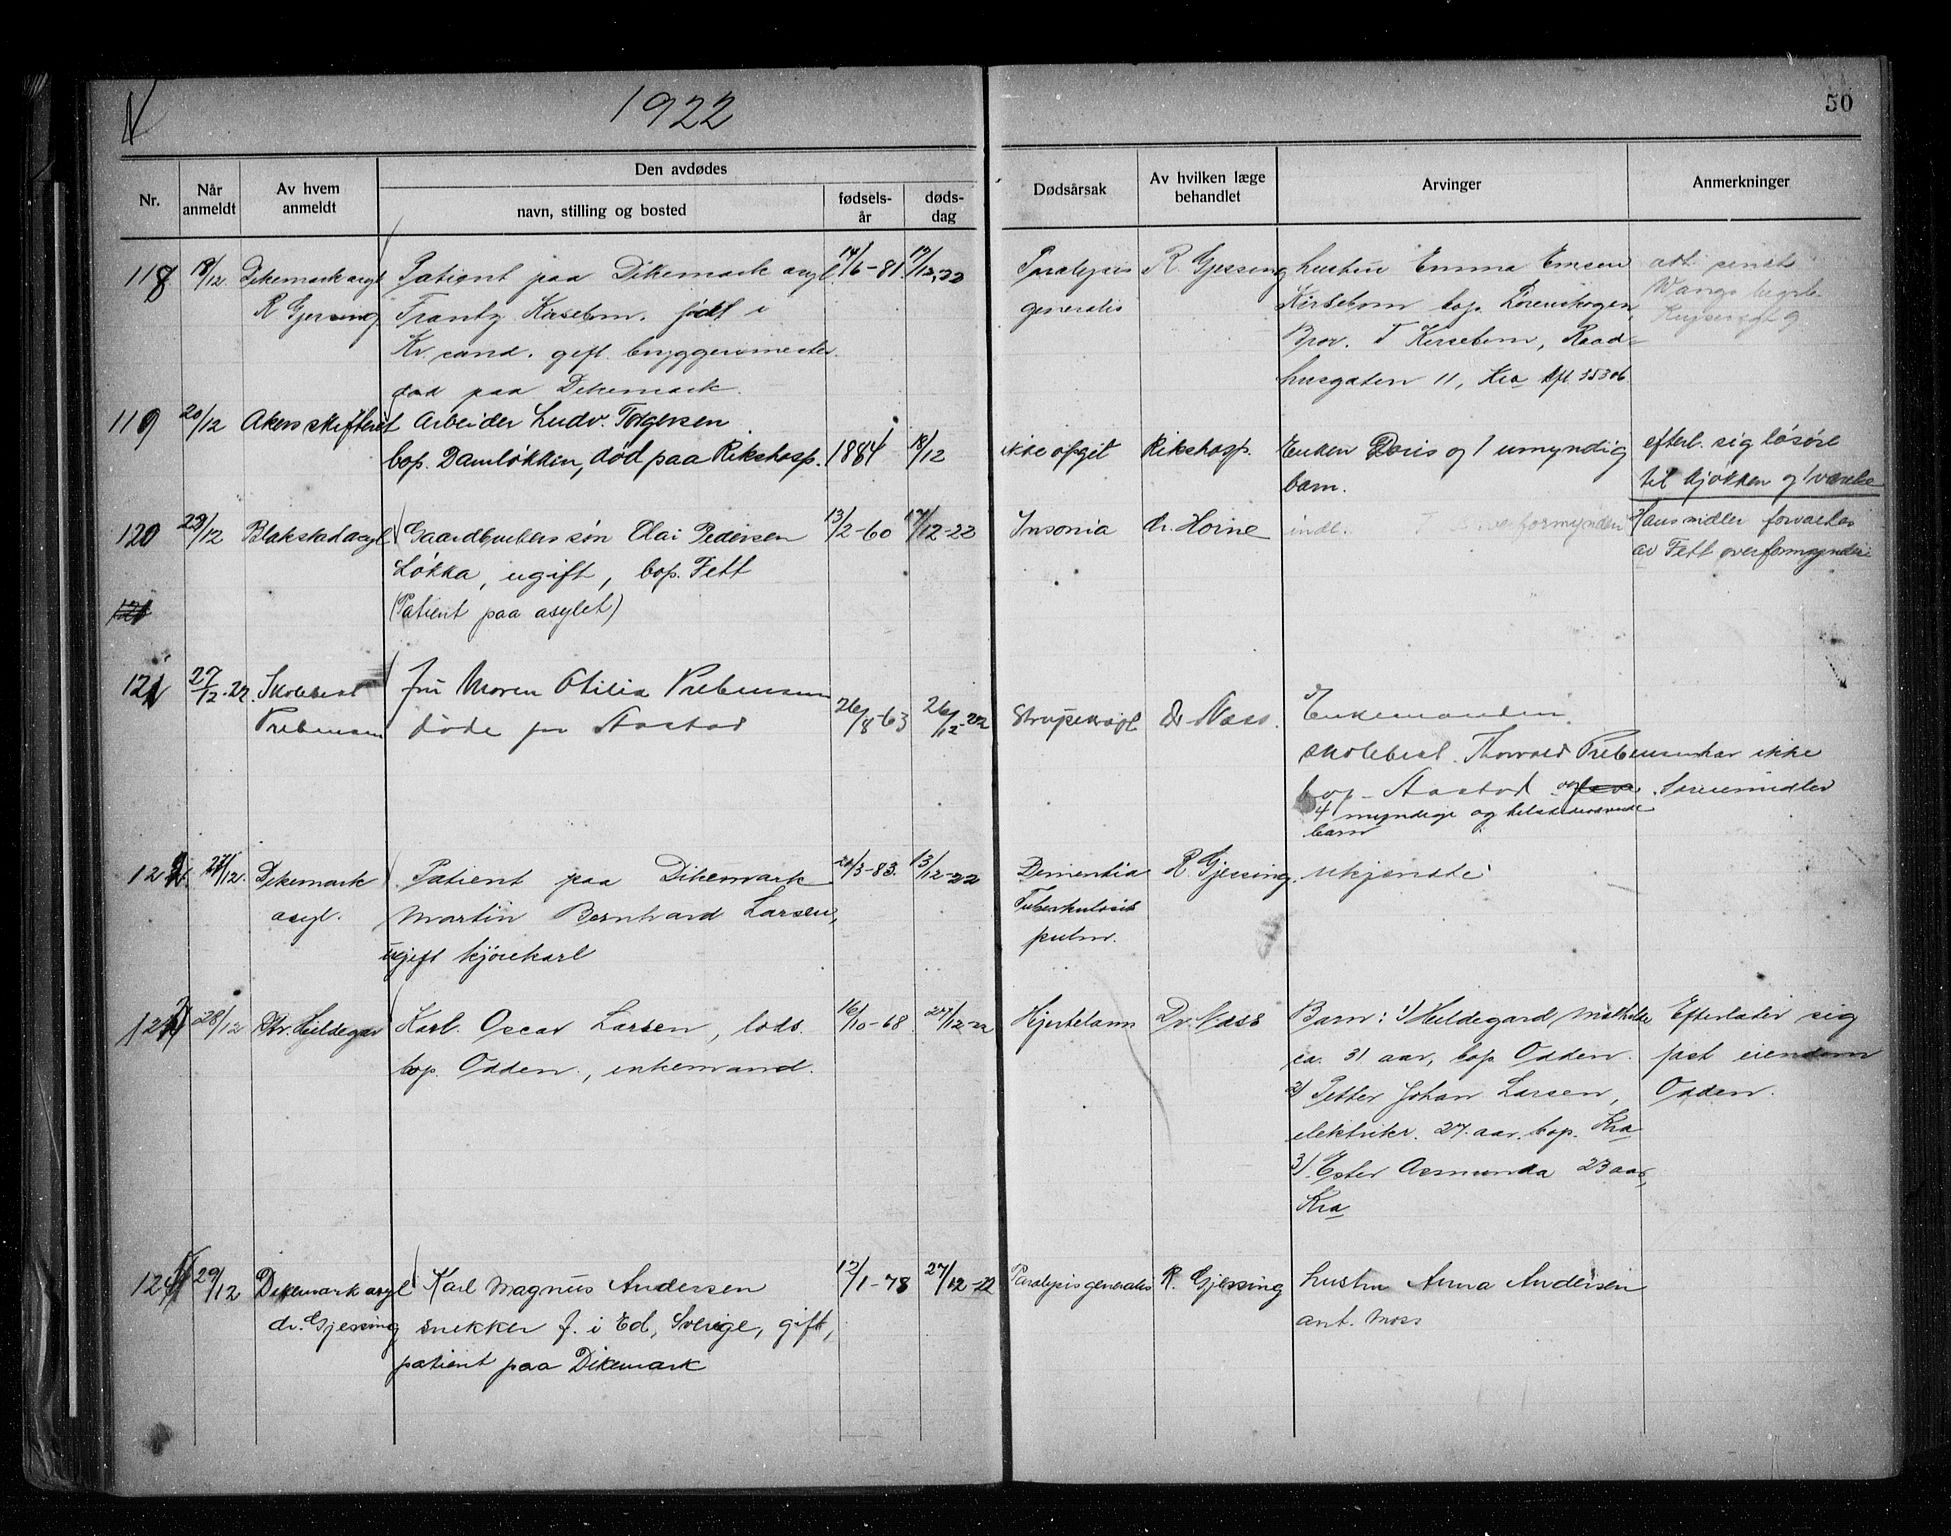 1922
50
Nr.
Når anmeldt
Av hvem anmeldt
Den avdødes
navn, stilling og bosted
fødsels-år
døds-dag
Dødsårsak
Av hvilken læge behandlet
Arvinger
Anmerkninger
118 18/12 Dikemark asyl Patient paa Dikemark asyl. 14/6-81 17/12-22 Paralysis R. Gjessing hustru Emma Emsen
R Gjessing Frantz Kirsebom, født i generalis Kirsebom bop. Lørenskogen,
Kr.sand. gift. bryggerimester Bror. T Kirsebom, Raad-
død paa Dikemark. husgaten 11, Kra tlf. 15306
119 20/12 Akers skifteret Arbeider Ludv. Torgersen
bop. Damløkken, død paa Rikshosp. 1884 18/12 ikke opgit Rikshosp. Enken Doris og 1 umyndig efterl. sig løsøre
barn. til kjøkken og 1 værelse
120 22/12 Blakstad asyl Gaardbrukers søn Olai Pedersen 13/2-60 17/12-22 Insonia dr. Horne Hans midler forvaltes
Løkka, ugift, bop. Fett av Fett overformynderi
(Patient paa asylet)
121
121 27/12-22. Skolebest. Fru Maren Otilia Prebensen 26/8-63 26/12-22 Strupekræft Dr Næss. Enkemanden
Prebensen døde paa Aastad
skolebest. Thorvald Prebensen har ikke
bop. Aastad og særmidler
4 myndige og tilstedeværende
barn
122 27/12. Dikemark Patient paa Dikemark 20/3-83. 13/12-22 Dementia R. Gjessing. ukjendte
asyl. Martin Bernhard Larsen, Tuberkulosis
ugift kjørekarl pulm.
123 28/12 Hildegar Karl Oscar Larsen, lods. 16/10-68 24/12-22 Hjertelam Dr. Næss Barn: 1) Hildegard Mathilde Efterlater sig
bop. Odden, enkemand. ca. 31 aar, bop Odden. fast eiendom
2) Petter Johan Larsen, Odden.
elektriker. 27 aar. bop. Kra
3) Ester Asmunda 23 aar,
Kra
124 29/12 Dikemark asyl Karl Magnus Andersen 12/1-78 27/12-22 Paralysis generalis R. Gjessing hustru Anna Andersen
dr. Gjessing snekker f. i Ed, Sverige, gift, ant. Moss
patient paa Dikemark